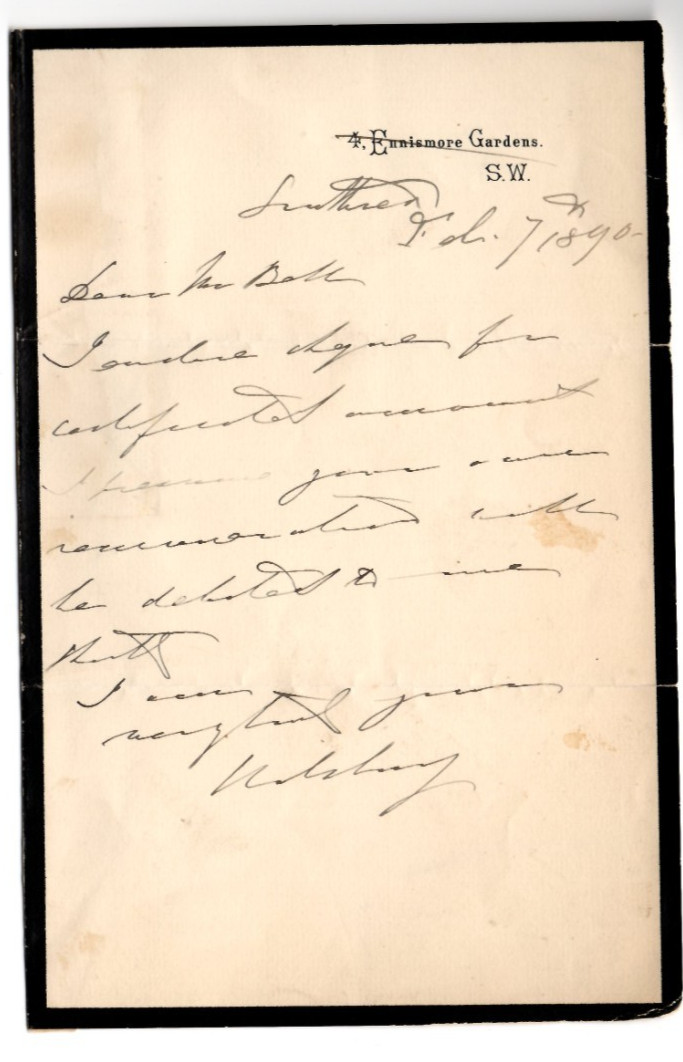 4, Ennismore Gardens.
S.W.
Feb. 7th 1890
Dear Mr Bell
I enclose cheque for
certificated amount
I presume your own
remuneration will
be debited to me
I am yours
very truly